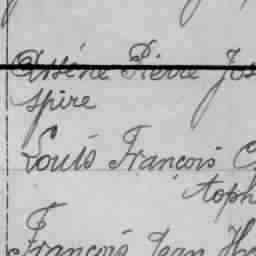 Arsène Pierre Jos
spire
Louis François C
toph
François Jean